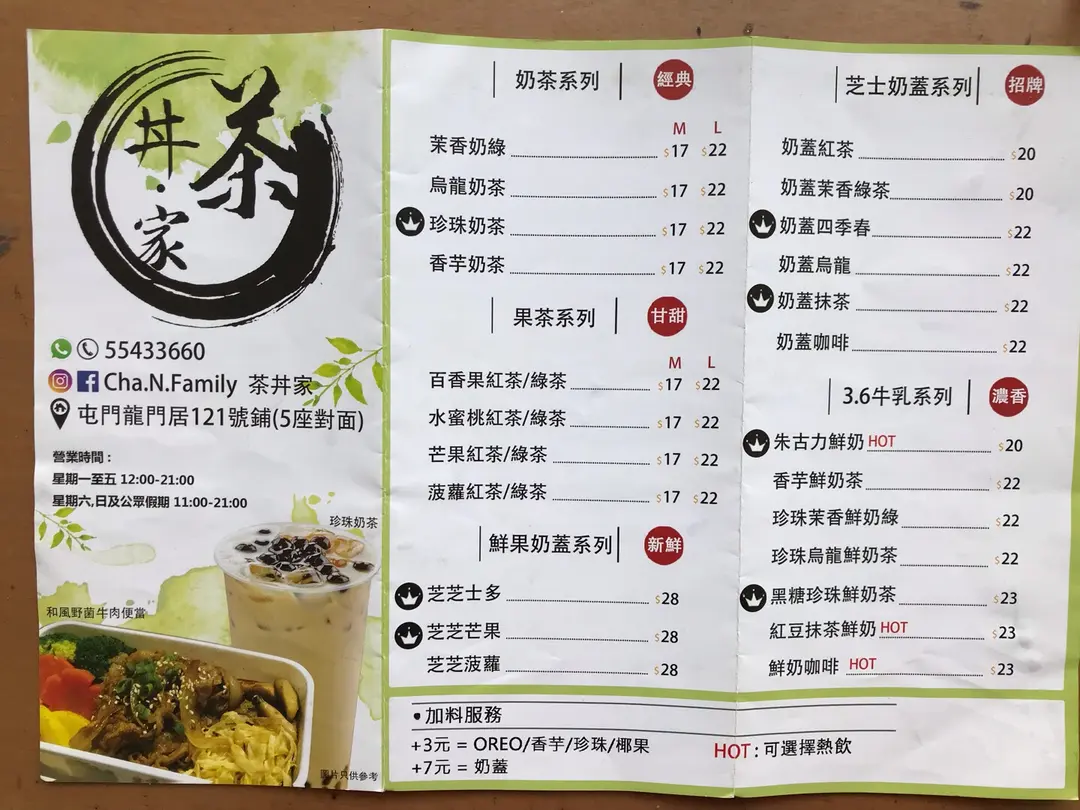 茶
丼·家
55433660
Cha.N.Family 茶丼家
屯門龍門居121號鋪(5座對面)
營業時間：
星期一至五 12:00-21:00
星期六,日及公眾假期 11:00-21:00
珍珠奶茶
和風野菌牛肉便當
圖片只供參考
奶茶系列 經典
M L
茉香奶綠 $17 $22
烏龍奶茶 $17 $22
珍珠奶茶 $17 $22
香芋奶茶 $17 $22
果茶系列 甘甜
M L
百香果紅茶/綠茶 $17 $22
水蜜桃紅茶/綠茶 $17 $22
芒果紅茶/綠茶 $17 $22
菠蘿紅茶/綠茶 $17 $22
鮮果奶蓋系列 新鮮
芝芝士多 $28
芝芝芒果 $28
芝芝菠蘿 $28
芝士奶蓋系列 招牌
奶蓋紅茶 $20
奶蓋茉香綠茶 $20
奶蓋四季春 $22
奶蓋烏龍 $22
奶蓋抹茶 $22
奶蓋咖啡 $22
3.6牛乳系列 濃香
朱古力鮮奶 HOT $20
香芋鮮奶茶 $22
珍珠茉香鮮奶綠 $22
珍珠烏龍鮮奶茶 $22
黑糖珍珠鮮奶茶 $23
紅豆抹茶鮮奶 HOT $23
鮮奶咖啡 HOT $23
•加料服務
+3元 = OREO/香芋/珍珠/椰果
+7元 = 奶蓋
HOT : 可選擇熱飲